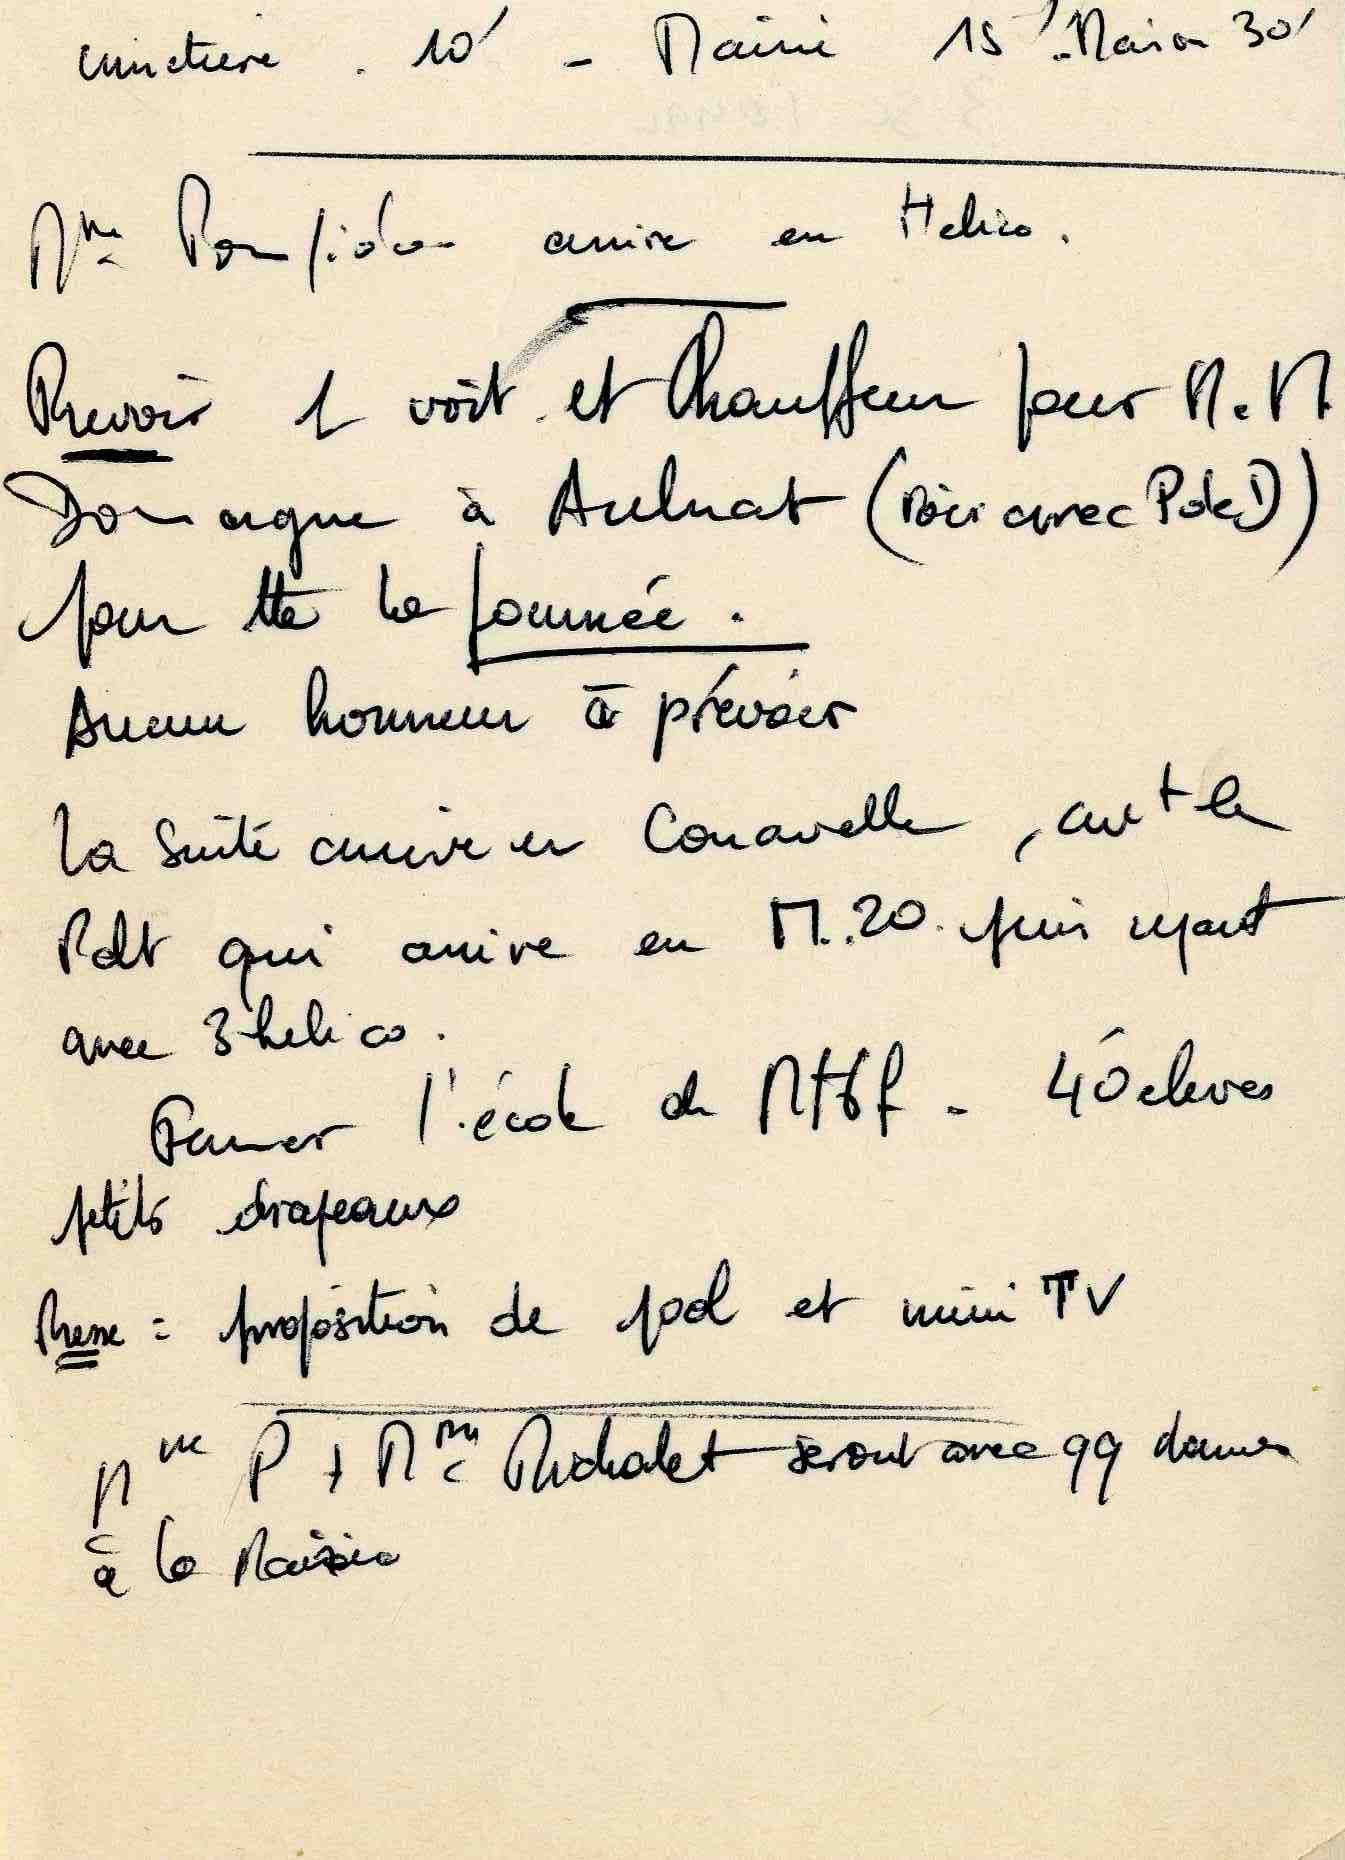 cimetière . 10' - Mairie 15' - Maison 30'
Mme Pompidou arrive en Helico.
Prevoir 1 voit et Chauffeur pour M. M
Domergue à Aulnat (voir avec P de D)
pour tte la journée.
Aucun honneur à prévoir
La suite arrive en Caravelle, avt le
Pdt qui arrive en M.20. puis repart
avec 3 helico.
Fermer l'école de - 40 eleves
petits drapeaux
Presse = proposition de pool et mini TV
Mme P + Mme Michalet seront avec qq dames
à la Mairie